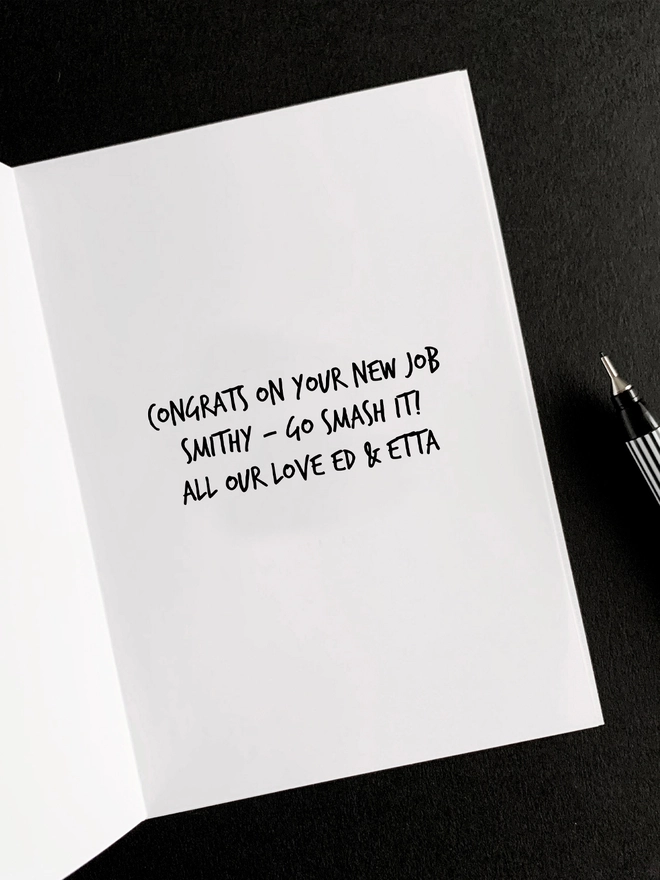 CONGRATS ON YOUR NEW JOB
SMITHY – GO SMASH IT!
ALL OUR LOVE ED & ETTA